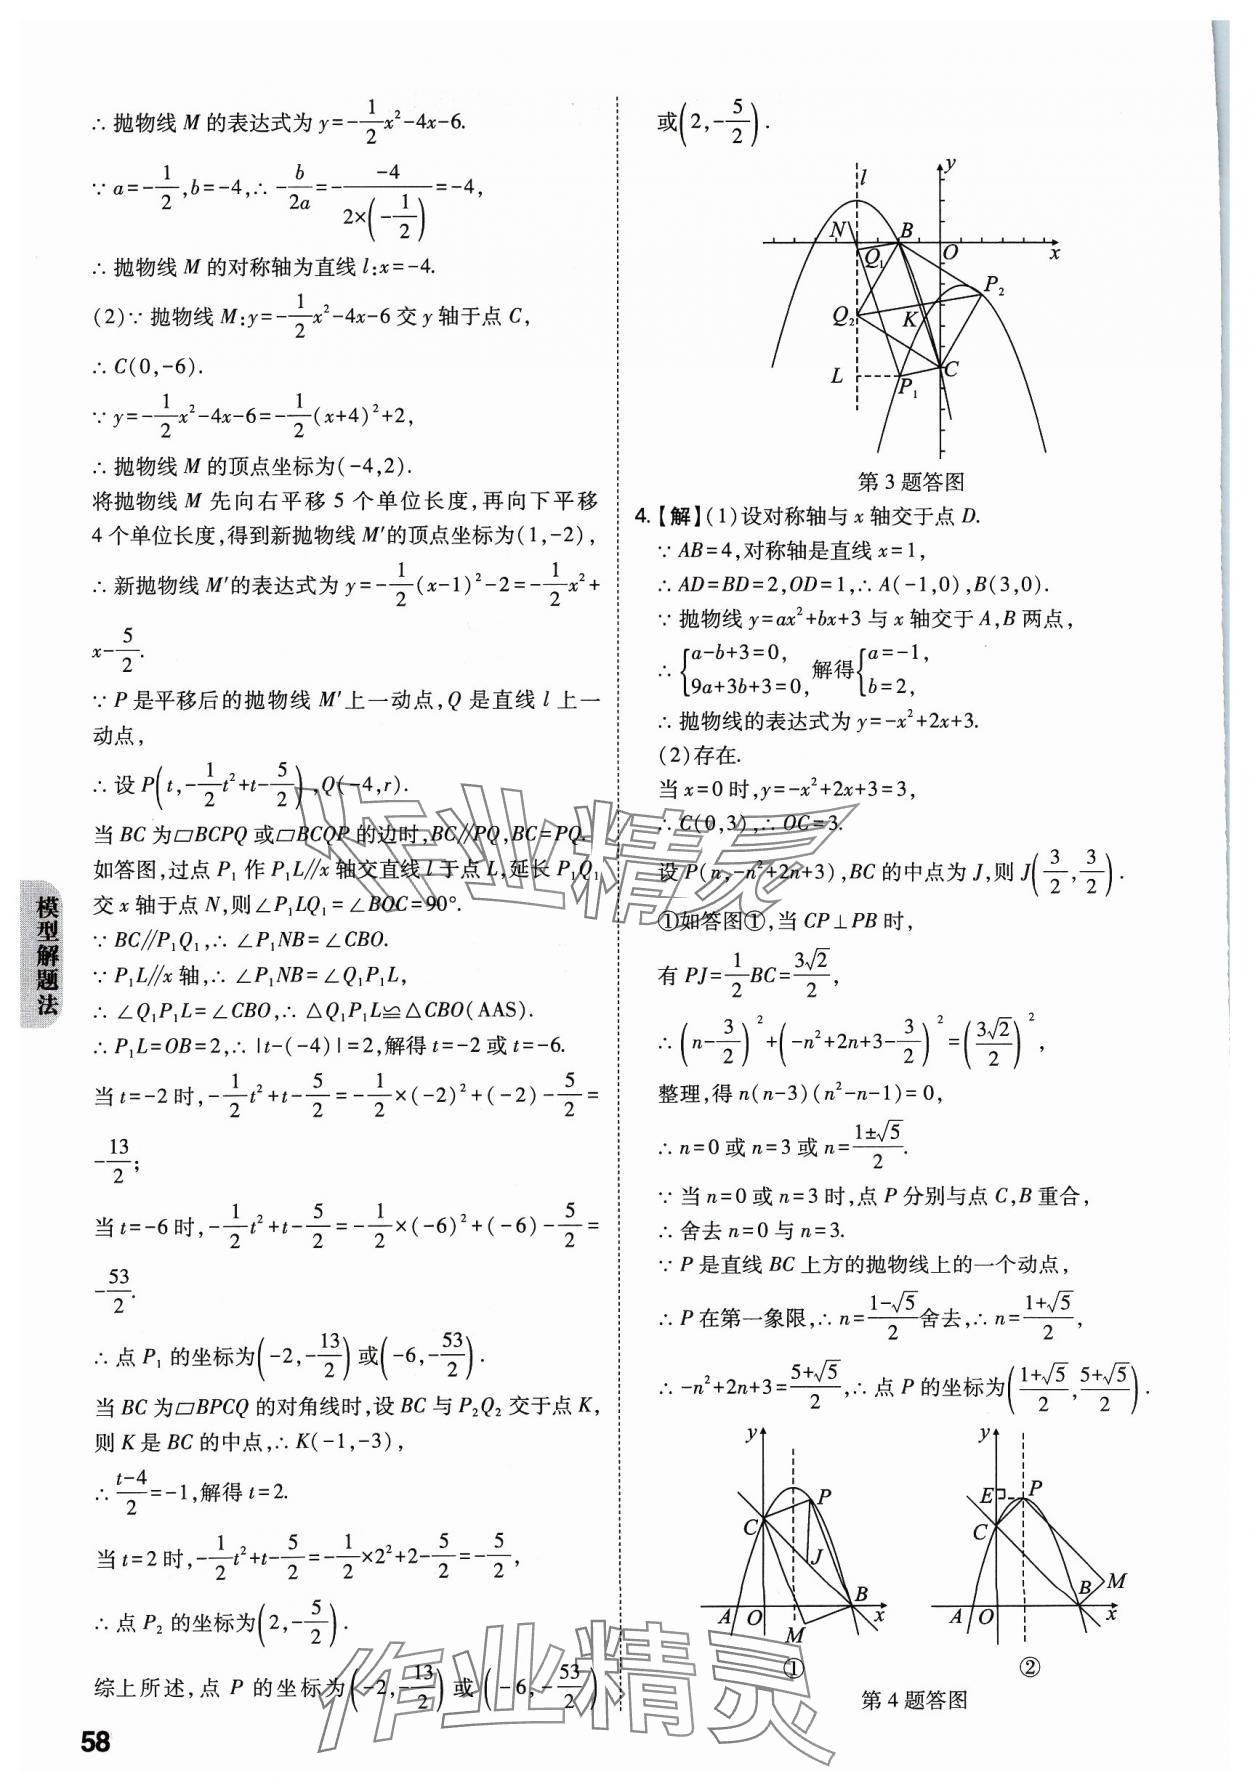 ∴ 抛物线 M 的表达式为 y=-1/2x²-4x-6.
∵ a=-1/2,b=-4,∴ -b/2a=-(-4)/(2×(-1/2))=-4,
∴ 抛物线 M 的对称轴为直线 l:x=-4.
(2)∵ 抛物线 M:y=-1/2x²-4x-6 交 y 轴于点 C,
∴ C(0,-6).
∵ y=-1/2x²-4x-6=-1/2(x+4)²+2,
∴ 抛物线 M 的顶点坐标为(-4,2).
将抛物线 M 先向右平移 5 个单位长度,再向下平移
4 个单位长度,得到新抛物线 M′的顶点坐标为(1,-2),
∴ 新抛物线 M′的表达式为 y=-1/2(x-1)²-2=-1/2x²+
x-5/2.
∵ P 是平移后的抛物线 M′上一动点,Q 是直线 l 上一
动点,
∴ 设 P(t,-1/2t²+t-5/2),Q(-4,r).
当 BC 为▱BCPQ 或▱BCQP 的边时,BC∥PQ,BC=PQ.
如答图,过点 P₁ 作 P₁L∥x 轴交直线 l 于点 L,延长 P₁Q₁
交 x 轴于点 N,则∠P₁LQ₁=∠BOC=90°.
∵ BC∥P₁Q₁,∴ ∠P₁NB=∠CBO.
∵ P₁L∥x 轴,∴ ∠P₁NB=∠Q₁P₁L,
∴ ∠Q₁P₁L=∠CBO,∴ △Q₁P₁L≌△CBO(AAS).
∴ P₁L=OB=2,∴ |t-(-4)|=2,解得 t=-2 或 t=-6.
当 t=-2 时,-1/2t²+t-5/2=-1/2×(-2)²+(-2)-5/2=
-13/2;
当 t=-6 时,-1/2t²+t-5/2=-1/2×(-6)²+(-6)-5/2=
-53/2.
∴ 点 P₁ 的坐标为(-2,-13/2)或(-6,-53/2).
当 BC 为▱BPCQ 的对角线时,设 BC 与 P₂Q₂ 交于点 K,
则 K 是 BC 的中点,∴ K(-1,-3),
∴ (t-4)/2=-1,解得 t=2.
当 t=2 时,-1/2t²+t-5/2=-1/2×2²+2-5/2=-5/2,
∴ 点 P₂ 的坐标为(2,-5/2).
综上所述,点 P 的坐标为(-2,-13/2)或(-6,-53/2)
58
模型解题法
或(2,-5/2).
y
l
N
B
O
x
Q₁
P₂
Q₂
K
L
P₁
C
第 3 题答图
4.【解】(1)设对称轴与 x 轴交于点 D.
∵ AB=4,对称轴是直线 x=1,
∴ AD=BD=2,OD=1,∴ A(-1,0),B(3,0).
∵ 抛物线 y=ax²+bx+3 与 x 轴交于 A,B 两点,
∴ {a-b+3=0, 9a+3b+3=0, 解得{a=-1, b=2,
∴ 抛物线的表达式为 y=-x²+2x+3.
(2)存在.
当 x=0 时,y=-x²+2x+3=3,
∴ C(0,3),∴ OC=3.
设 P(n,-n²+2n+3),BC 的中点为 J,则 J(3/2,3/2).
①如答图①,当 CP⊥PB 时,
有 PJ=1/2BC=3√2/2,
∴ (n-3/2)²+(-n²+2n+3-3/2)²=(3√2/2)²,
整理,得 n(n-3)(n²-n-1)=0,
∴ n=0 或 n=3 或 n=(1±√5)/2.
∵ 当 n=0 或 n=3 时,点 P 分别与点 C,B 重合,
∴ 舍去 n=0 与 n=3.
∵ P 是直线 BC 上方的抛物线上的一个动点,
∴ P 在第一象限,∴ n=(1-√5)/2舍去,∴ n=(1+√5)/2,
∴ -n²+2n+3=(5+√5)/2,∴ 点 P 的坐标为((1+√5)/2,(5+√5)/2).
y
P
C
J
B
A
O
M
x
①
y
E
P
C
M
B
A
O
x
②
第 4 题答图
作业精灵
作业精灵